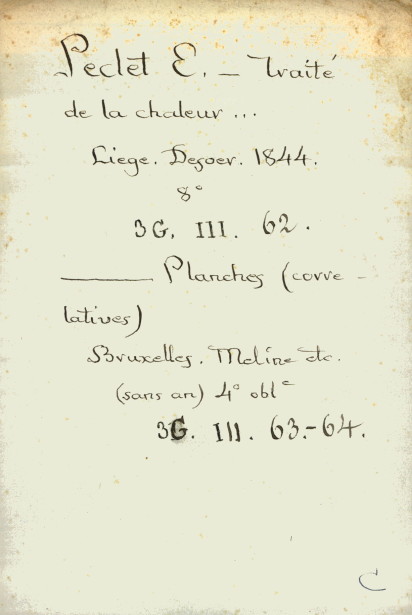 Peclet E. — Traité
de la chaleur ...
Liege. Desoer. 1844.
8°
3G. III. 62.
——— Planches (corre-
latives)
Bruxelles. Meline etc.
(sans an) 4° obl^e
3G. III. 63.-64.
C